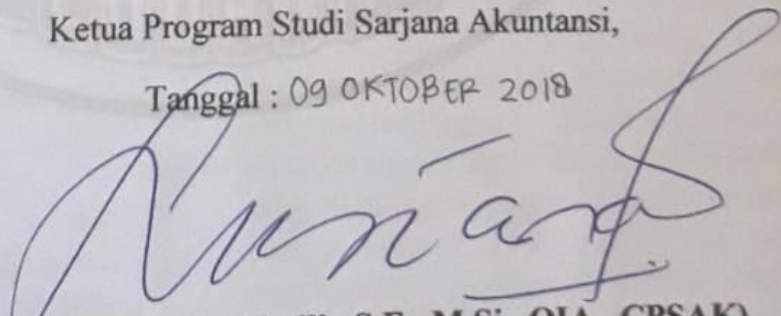 Ketua Program Studi Sarjana Akuntansi,
Tanggal : 09 OKTOBER 2018
M.Si., QIA., CPSAK)